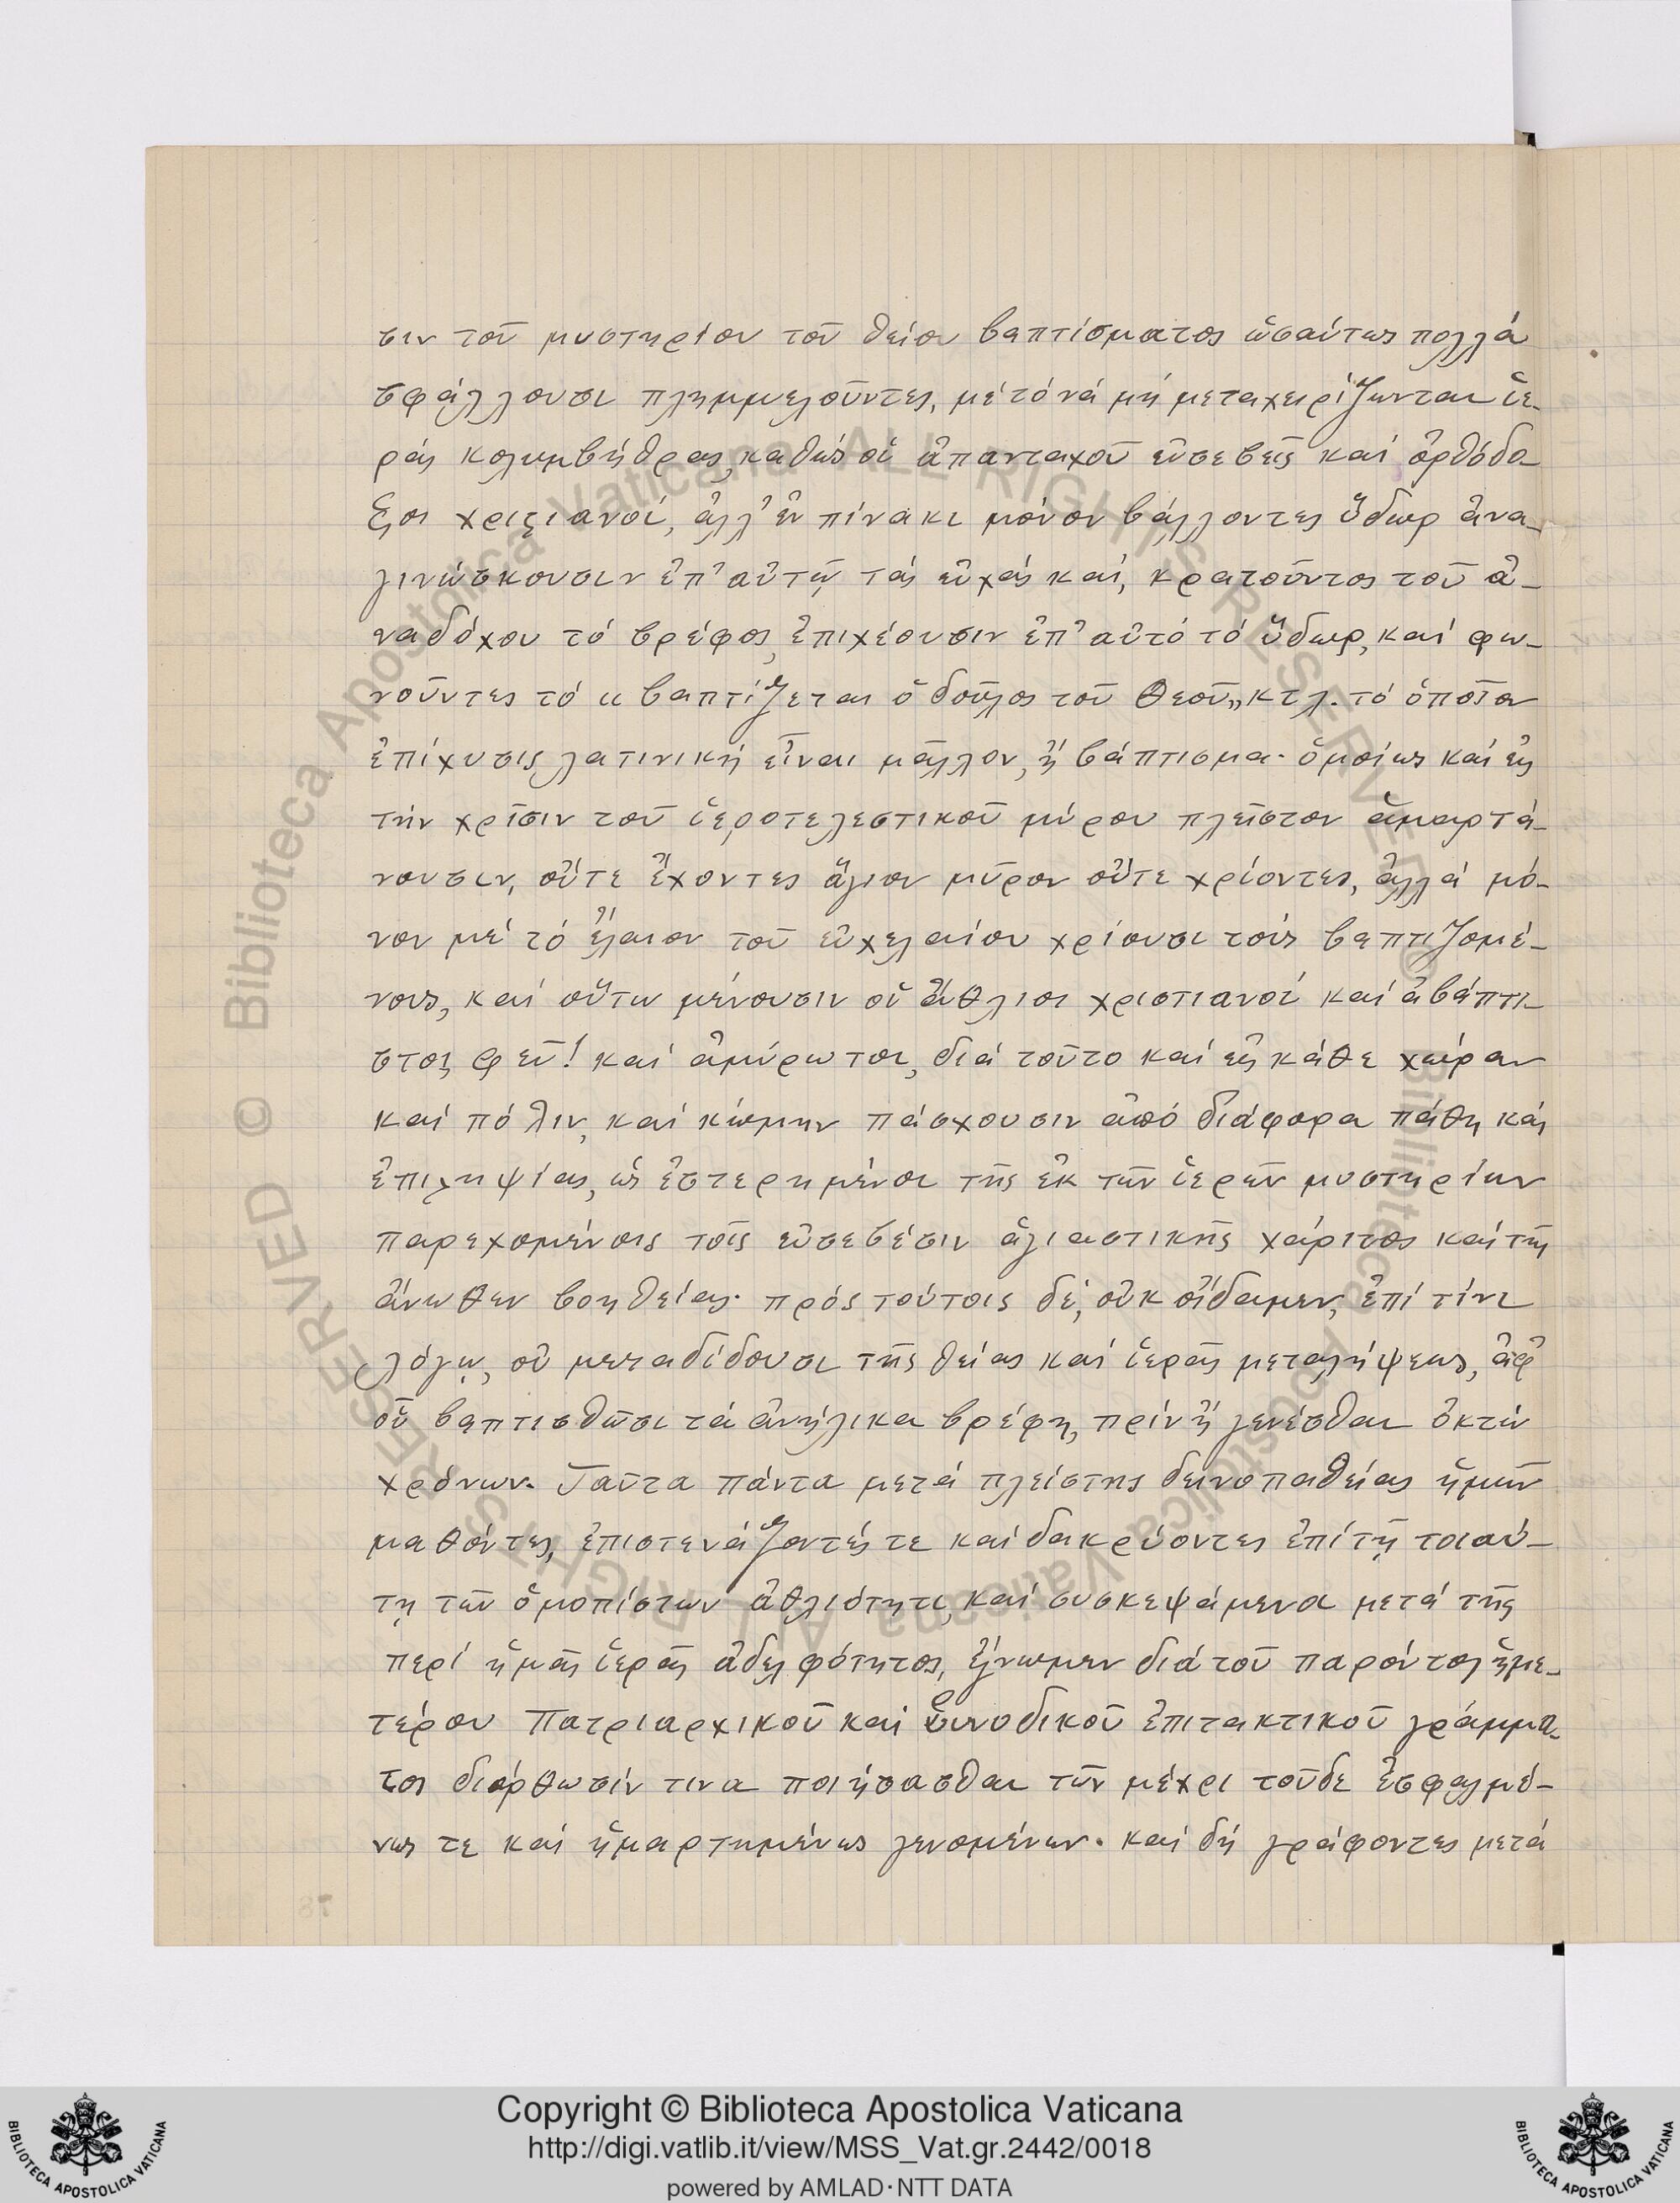 σιν τοῦ μυστηρίου τοῦ θείου βαπτίσματος ὡσαύτως πολλά
σφάλλουσι πλημμελοῦντες, μέ τό νά μή μεταχειρίζωνται ἱε-
ράς κολυμβήθρας, καθώς οἱ ἁπανταχοῦ εὐσεβεῖς καί ὀρθόδο-
ξοι χριστιανοί, ἀλλ' ἐν πίνακι μόνον βάλλοντες ὕδωρ ἀνα-
γινώσκουσιν ἐπ' αὐτῷ τάς εὐχάς καί, κρατοῦντος τοῦ ἀ-
ναδόχου τό βρέφος, ἐπιχέουσιν ἐπ' αὐτό τό ὕδωρ, καί φω-
νοῦντες τό «βαπτίζεται ὁ δοῦλος τοῦ Θεοῦ„ κτλ. τό ὁποῖον
ἐπίχυσις λατινική εἶναι μᾶλλον, ἤ βάπτισμα· ὁμοίως καί εἰς
τήν χρῖσιν τοῦ ἱεροτελεστικοῦ μύρου πλεῖστον ἁμαρτά-
νουσιν, οὔτε ἔχοντες ἅγιον μῦρον οὔτε χρίοντες, ἀλλά μό-
νον μέ τό ἔλαιον τοῦ εὐχελαίου χρίουσι τούς βαπτιζομέ-
νους, καί οὕτω μένουσιν οἱ ἄθλιοι χριστιανοί καί ἀβάπτι-
στοι, φεῦ! καί ἀμύρωτοι, διά τοῦτο καί εἰς κάθε χώραν
καί πόλιν, καί κώμην πάσχουσιν ἀπό διάφορα πάθη καί
ἐπιληψίας, ὡς ἐστερημένοι τῆς ἐκ τῶν ἱερῶν μυστηρίων
παρεχομένοις τοῖς εὐσεβέσιν ἁγιαστικῆς χάριτος καί τῆς
ἄνωθεν βοηθείας· πρός τούτοις δέ, οὐκ οἴδαμεν, ἐπί τίνι
λόγῳ, οὐ μεταδίδουσι τῆς θείας καί ἱερᾶς μεταλήψεως, ἀφ'
οὗ βαπτισθῶσι τά ἀνήλικα βρέφη, πρίν ἤ γενέσθαι ὀκτώ
χρόνων. Ταῦτα πάντα μετά πλείστης δεινοπαθείας ἡμῶν
μαθόντες, ἐπιστενάζοντές τε καί δακρύοντες ἐπί τῇ τοιαύ-
τῃ τῶν ὁμοπίστων ἀθλιότητι, καί συσκεψάμενοι μετά τῆς
περί ἡμᾶς ἱερᾶς ἀδελφότητος, ἔγνωμεν διά τοῦ παρόντος ἡμε-
τέρου Πατριαρχικοῦ καί Συνοδικοῦ ἐπιτακτικοῦ γράμμα-
τος διόρθωσίν τινα ποιήσασθαι τῶν μέχρι τοῦδε ἐσφαλμέ-
νως τε καί ἡμαρτημένως γενομένων. καί δή γράφοντες μετά
Copyright © Biblioteca Apostolica Vaticana
http://digi.vatlib.it/view/MSS_Vat.gr.2442/0018
powered by AMLAD·NTT DATA